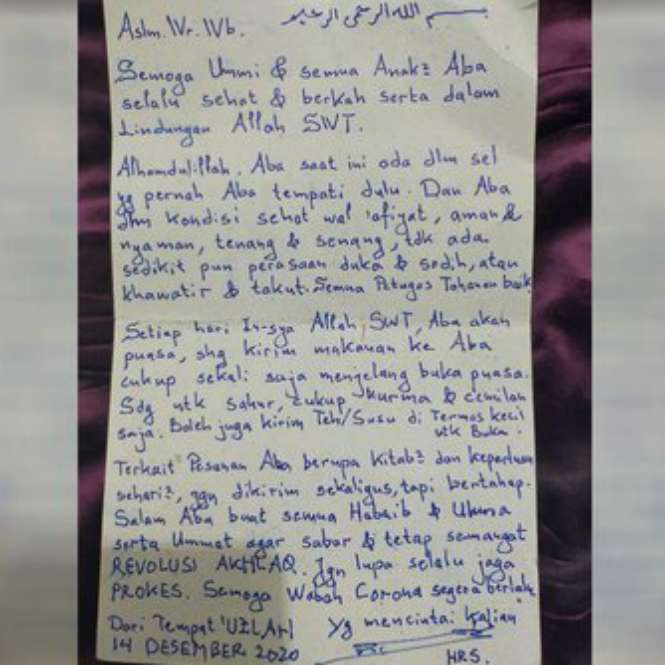 بسم الله الرحمن الرحيم
Aslm. Wr. Wb.
Semoga Ummi & semua Anak² Aba
selalu sehat & berkah serta dalam
Lindungan Allah SWT.
Alhamdulillah, Aba saat ini ada dlm sel
yg pernah Aba tempati dulu. Dan Aba
dlm kondisi sehat wal 'afiyat, aman &
nyaman, tenang & senang, tdk ada
sedikit pun perasaan duka & sedih, atau
khawatir & takut. Semua Petugas Tahanan baik
Setiap hari In-sya Allah SWT, Aba akan
puasa, shg kirim makanan ke Aba
cukup sekali saja menjelang buka puasa.
Sdg utk Sahur, cukup kurma & cemilan
saja. Boleh juga kirim Teh/Susu di Termos kecil
utk Buka.
Terkait Pesanan Aba berupa Kitab² dan keperluan
sehari², jgn dikirim sekaligus, tapi bertahap.
Salam Aba buat semua Habaib & Ulama
serta Ummat agar sabar & tetap semangat
REVOLUSI AKHLAQ. Jgn lupa selalu jaga
PROKES. Semoga Wabah Corona segera berlalu
Dari Tempat 'UZLAH Yg mencintai kalian
14 DESEMBER 2020
HRS.